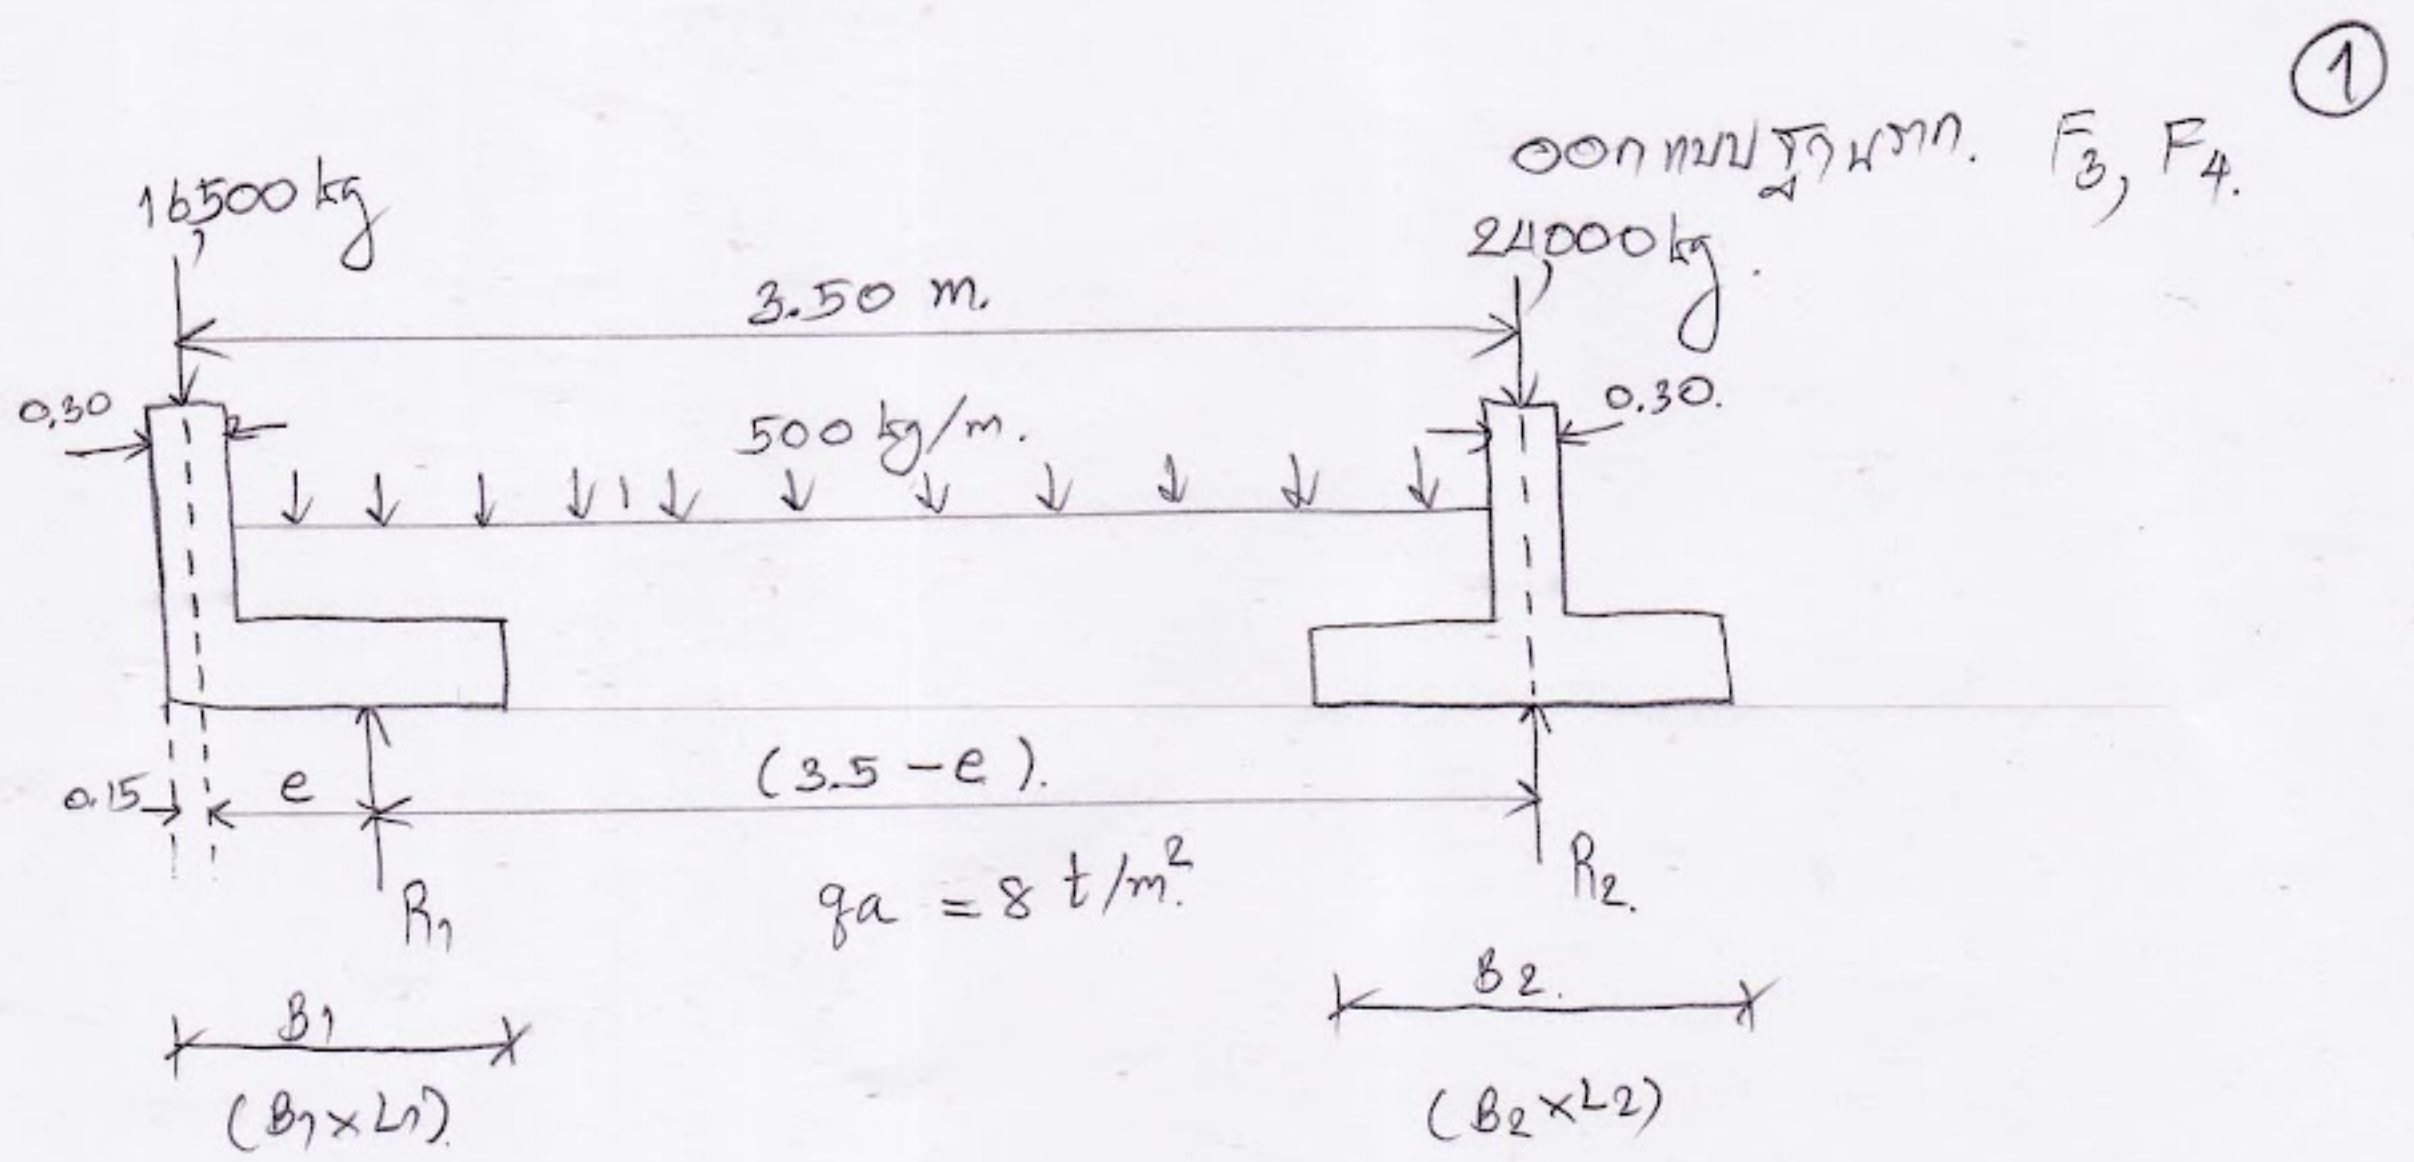 1
ออกแบบฐานราก. F3, F4.
16,500 kg
24,000 kg.
3.50 m.
0.30
0.30.
500 kg/m.
0.15
e
(3.5 - e).
R1
R2.
qa = 8 t/m².
B1
B2.
(B1 x L1).
(B2 x L2)